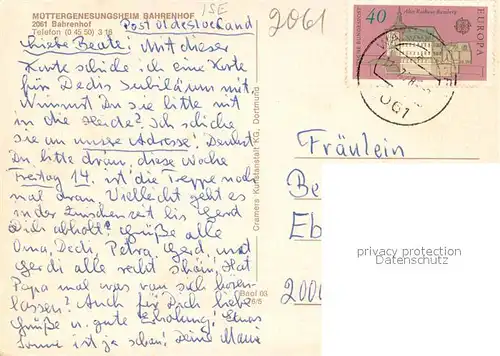 MÜTTERGENESUNGSHEIM BAHRENHOF
2061 Bahrenhof
Telefon (0 45 50) 3 16
Post Oldesloe Land
2061
Liebe Beate! Mit dieser
Karte schicke ich eine Karte
für Dedis Jubiläum mit.
Nimmst Du sie bitte mit
in die Heide? Ich schicke
sie an unsre Adresse! Denkst
Du bitte dran, diese Woche
Freitag 14. ist die Treppe noch
mal dran. Vielleicht geht es
in der Zwischenzeit bis Gerd
Dich abholt! Grüße alle
Oma, Dedi, Petra, Gerd, und
Gerdi alle recht schön. Hat
Papa mal was von sich hören
lassen? Auch für Dich liebe
Grüße u. gute Erholung! Etwas
Sonne ist ja schon! Deine Mami
Cramers Kunstanstalt KG, Dortmund
03
DEUTSCHE BUNDESPOST
40
Altes Rathaus Bamberg
EUROPA
061
Fräulein
Be
Eb
2000
privacy protection watermark
Datenschutz-Wasserzeichen